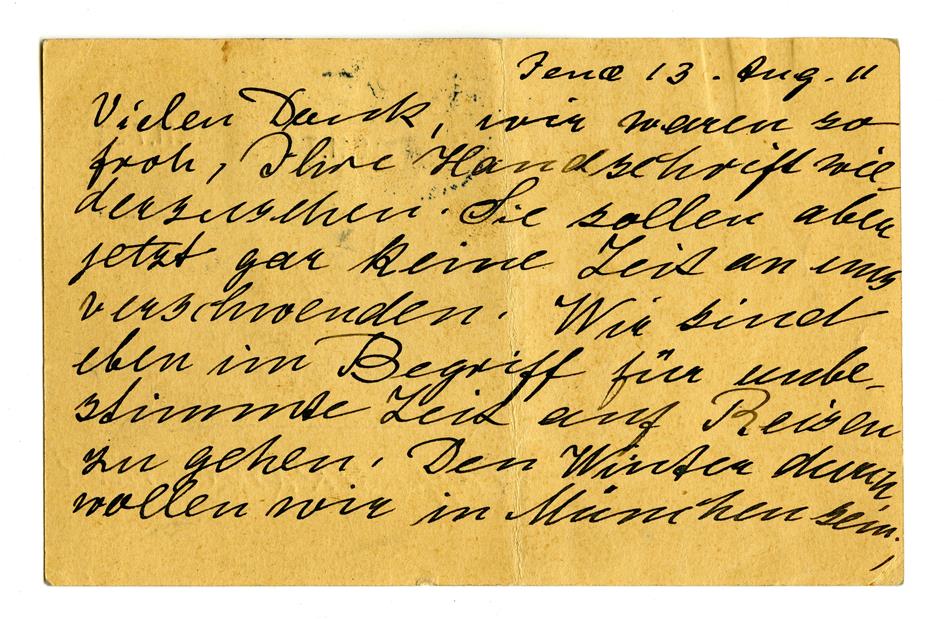 Jena 13. Aug. 11
Vielen Dank, wir waren so
froh, Ihre Handschrift wie-
derzusehen. Sie sollen aber
jetzt gar keine Zeit an uns
verschwenden. Wir sind
eben im Begriff für unbe-
stimmte Zeit auf Reisen
zu gehen. Den Winter durch
wollen wir in München sein.